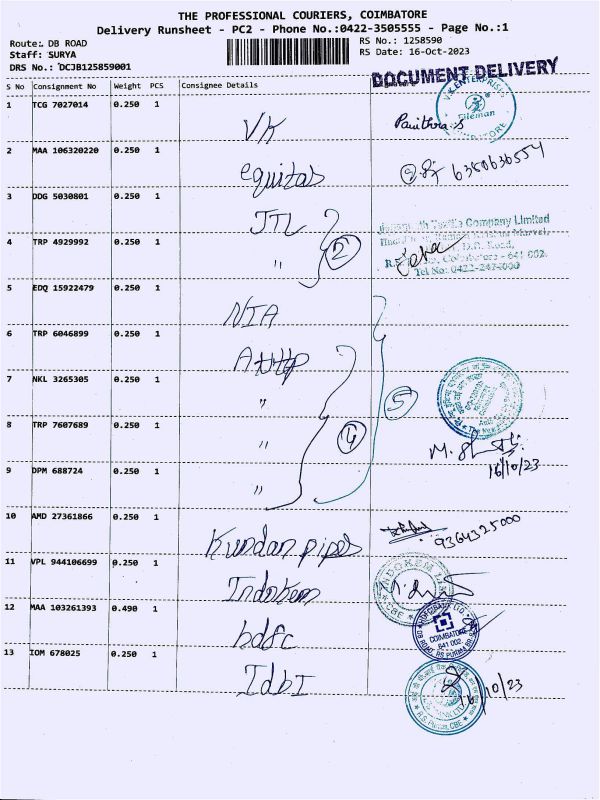 THE PROFESSIONAL COURIERS, COIMBATORE
Delivery Runsheet - PC2 - Phone No.:0422-3505555 - Page No.:1
Route: DB ROAD
RS No.: 1258590
Staff: SURYA
RS Date: 16-Oct-2023
DRS No.: DCJB125859001
DOCUMENT DELIVERY
S No Consignment No Weight PCS Consignee Details
1 TCG 7027014 0.250 1 VK
2 MAA 106320220 0.250 1 equitas 6380636554
3 DDG 5030801 0.250 1 JTL
4 TRP 4929992 0.250 1 " 2
Company Limited
D.B. Road,
Coimbatore - 641 002.
Tel No: 0422-
5 EDQ 15922479 0.250 1 NIA
6 TRP 6046899 0.250 1
7 NKL 3265305 0.250 1 " 5
8 TRP 7607689 0.250 1 " 4
16/10/23
9 DPM 688724 0.250 1 "
10 AMD 27361866 0.250 1 Kundan pipes 9364325000
11 VPL 944106699 0.250 1 Indokem
INDOKEM
CBE
12 MAA 103261393 0.490 1 hdfc
COIMBATORE
641 002
13 IOM 678025 0.250 1 IdbI
16/10/23